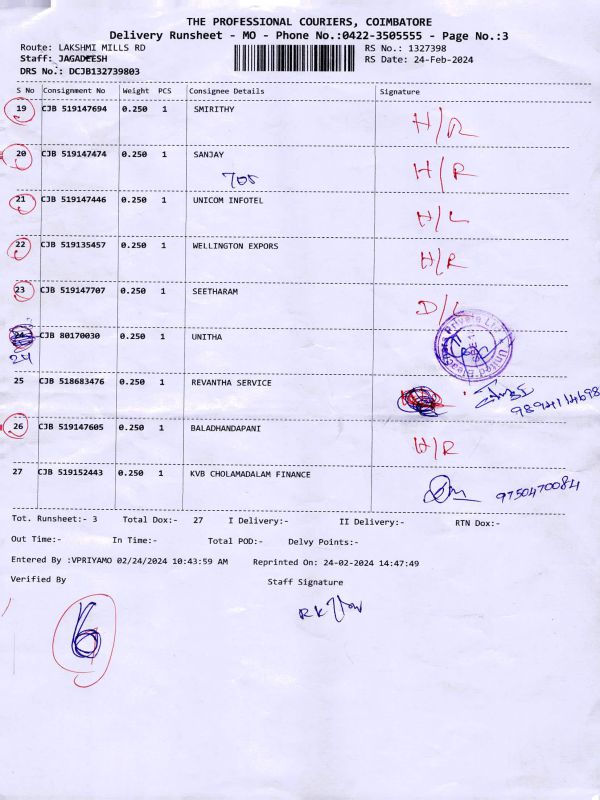 THE PROFESSIONAL COURIERS, COIMBATORE
Delivery Runsheet - MO - Phone No.:0422-3505555 - Page No.:3
Route: LAKSHMI MILLS RD RS No.: 1327398
Staff: JAGADEESH RS Date: 24-Feb-2024
DRS No.: DCJB132739803
S No Consignment No Weight PCS Consignee Details Signature
19 CJB 519147694 0.250 1 SMIRITHY H/R
20 CJB 519147474 0.250 1 SANJAY H/R
705
21 CJB 519147446 0.250 1 UNICOM INFOTEL H/L
22 CJB 519135457 0.250 1 WELLINGTON EXPORS H/R
23 CJB 519147707 0.250 1 SEETHARAM D/L
24 CJB 80170030 0.250 1 UNITHA
24
25 CJB 518683476 0.250 1 REVANTHA SERVICE
26 CJB 519147605 0.250 1 BALADHANDAPANI H/R
27 CJB 519152443 0.250 1 KVB CHOLAMADALAM FINANCE 9750470084
Tot. Runsheet:- 3 Total Dox:- 27 I Delivery:- II Delivery:- RTN Dox:-
Out Time:- In Time:- Total POD:- Delvy Points:-
Entered By :VPRIYAMO 02/24/2024 10:43:59 AM Reprinted On: 24-02-2024 14:47:49
Verified By Staff Signature
6